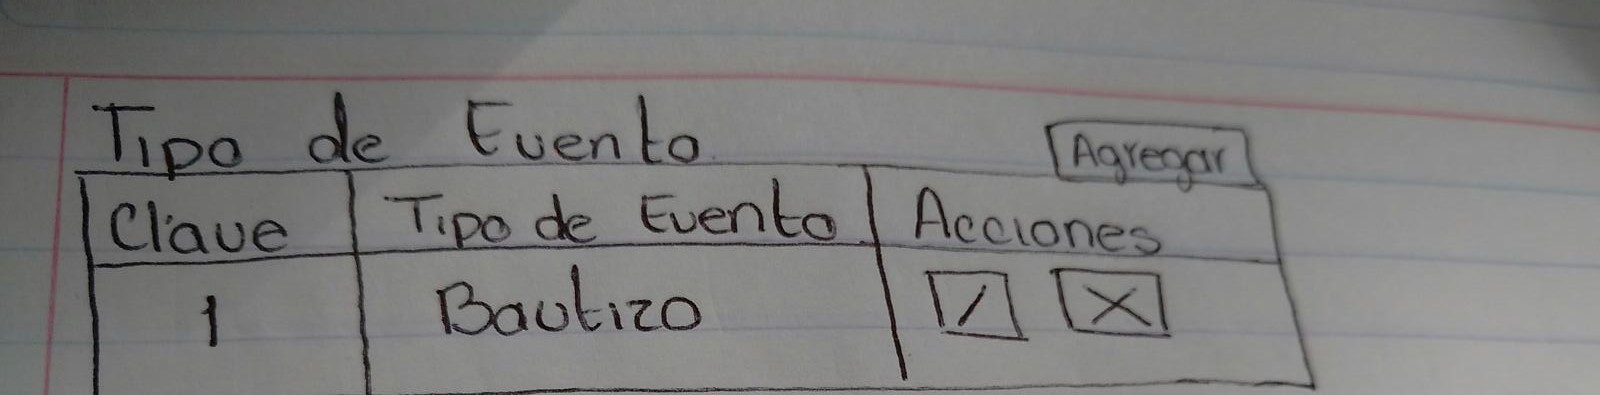 Tipo de Evento
Agregar
Clave Tipo de Evento Acciones
1 Bautizo